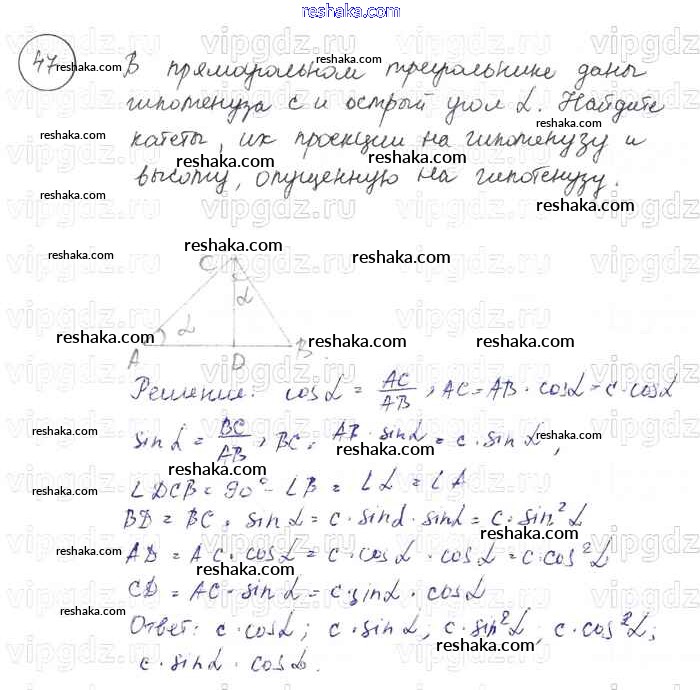 47
В прямоугольном треугольнике даны
гипотенуза c и острый угол α. Найдите
катеты, их проекции на гипотенузу и
высоту, опущенную на гипотенузу.
C
α
α
A D B
Решение: cosα = AC/AB, AC = AB · cosα = c · cosα
sinα = BC/AB, BC = AB · sinα = c · sinα,
∠DCB = 90° - ∠B = ∠α = ∠A
BD = BC · sinα = c · sinα · sinα = c · sin²α
AD = AC · cosα = c · cosα · cosα = c · cos²α
CD = AC · sinα = c · sinα · cosα
Ответ: c · cosα; c · sinα; c · sin²α; c · cos²α;
c · sinα · cosα.
reshaka.com
vipgdz.ru